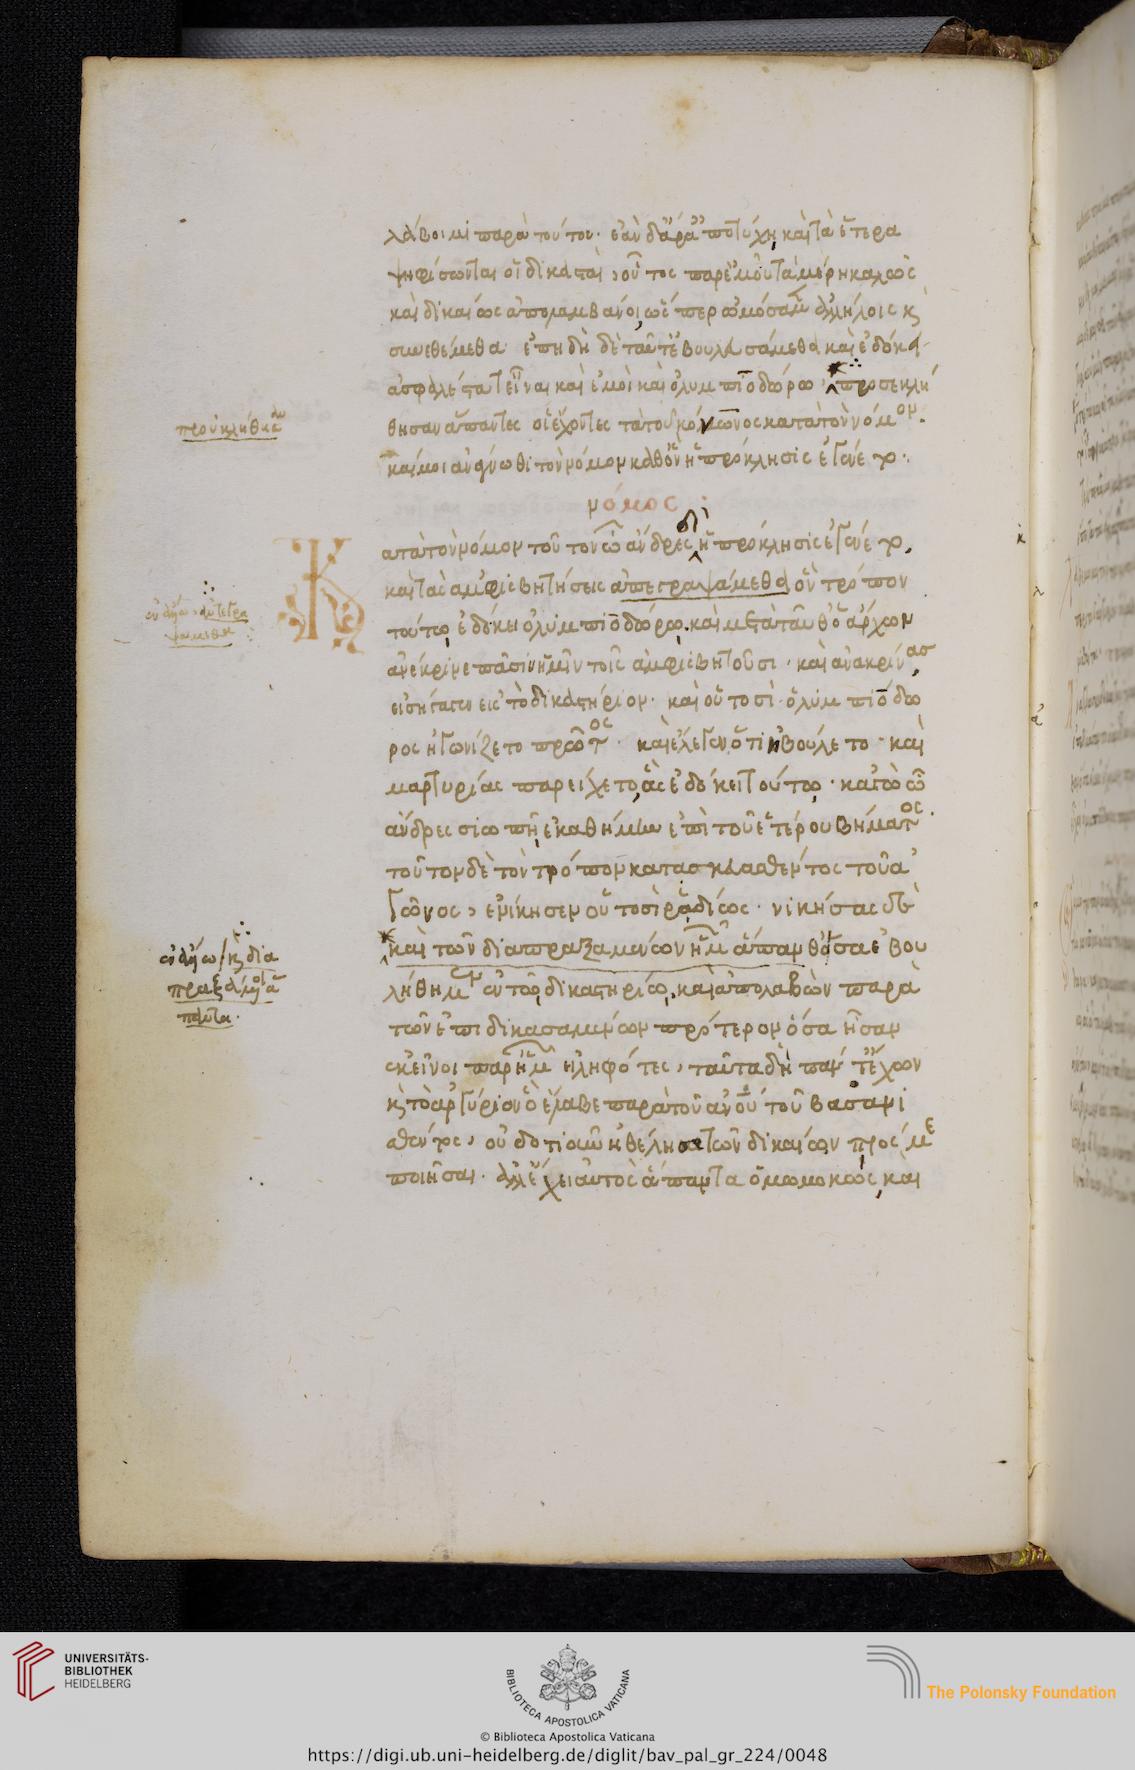 λάβοιμι παρὰ τούτου· ἐὰν δ' ἄρα ἀποτύχῃ, καὶ τὰ ἕτερα
ψηφίσωνται οἱ δικασταὶ, οὗτος παρ' ἐμοῦ τὰ μέρη καλῶς
καὶ δικαίως ἀπολαμβάνοι, ὥσπερ ὠμόσαμεν ἀλλήλοις κ
συνεθέμεθα· ἐπειδὴ δὲ ταῦτ' ἐβουλευσάμεθα καὶ ἐδόκει
ἀσφαλέστατ' εἶναι καὶ ἐμοὶ καὶ ὀλυμπιοδώρῳ, προσεκλή
θησαν ἅπαντες οἱ ἔχοντες τὰ τοῦ κόνωνος κατὰ τὸν νόμον·
καί μοι ἀνάγνωθι τὸν νόμον καθ' ὃν ἡ πρόκλησις ἐγένετο·
νόμος :
Κατὰ τὸν νόμον τοῦτον ὦ ἄνδρες δι ἡ πρόκλησις ἐγένετο,
καὶ τὰς ἀμφισβητήσεις ἀπεγραψάμεθα ὃν τρόπον
τούτῳ ἐδόκει ὀλυμπιοδώρῳ. καὶ μετὰ ταῦθ' ὁ ἄρχων
ἀνέκρινε πᾶσιν ἡμῖν τοῖς ἀμφισβητοῦσι· καὶ ἀνακρίνας
εἰσήγαγεν εἰς τὸ δικαστήριον· καὶ οὑτοσὶ ὀλυμπιόδω
ρος ἠγωνίζετο πρῶτος· καὶ ἔλεγεν ὅτι ἠβούλετο· καὶ
μαρτυρίας παρείχετο, ἃς ἐδόκει τούτῳ· κἀγὼ ὦ
ἄνδρες σιωπῇ ἐκαθήμην ἐπὶ τοῦ ἑτέρου βήματος.
τοῦτον δὲ τὸν τρόπον κατασκευασθέντος τοῦ ἀ
γῶνος, ἐνίκησεν οὑτοσὶ ῥᾳδίως· νικήσας δὲ
καὶ τῶν διαπραξαμένων ἡμῶν ἅπανθ' ὅσα ἐβου
λήθημεν ἐν τῷ δικαστηρίῳ, καὶ ἀπολαβὼν παρὰ
τῶν ἐπιδικασαμένων πρότερον ὅσα ἦσαν
ἐκεῖνοι παρ' ἡμῶν εἰληφότες, ταῦτα δὴ πάντ' ἔχων
κ τὸ ἀργύριον ὃ ἔλαβε παρὰ τοῦ ἀνου τοῦ βασανι
σθέντος, οὐδοτιοῦν ἠθέλησε τῶν δικαίων πρός με
ποιῆσαι. ἀλλ' ἔχει αὐτὸς ἅπαντα ὀμωμοκὼς, καὶ
κ διαπραξάμενοι
πάντα.